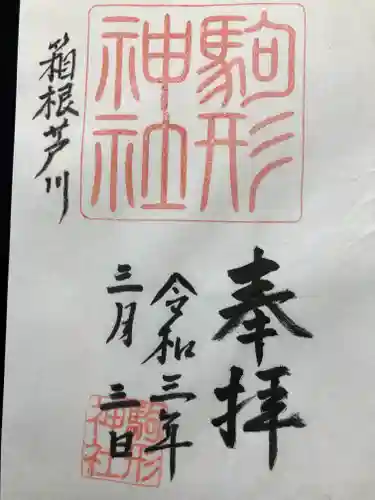 奉拝
駒形
神社
令和三年
三月三日
箱根芦川
駒形
神社